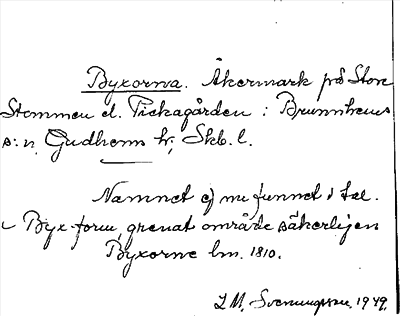 Byxorna. Åkermark på Stom
Stommen el. Pickagården i Brunnhems
s:n, Gudhems hd; Skb. l.
Namnet ej nu funnet i tal.
Byx-form, grenat område säkerligen
Byxorne lm. 1810.
L. M. Svenungsson. 1949.